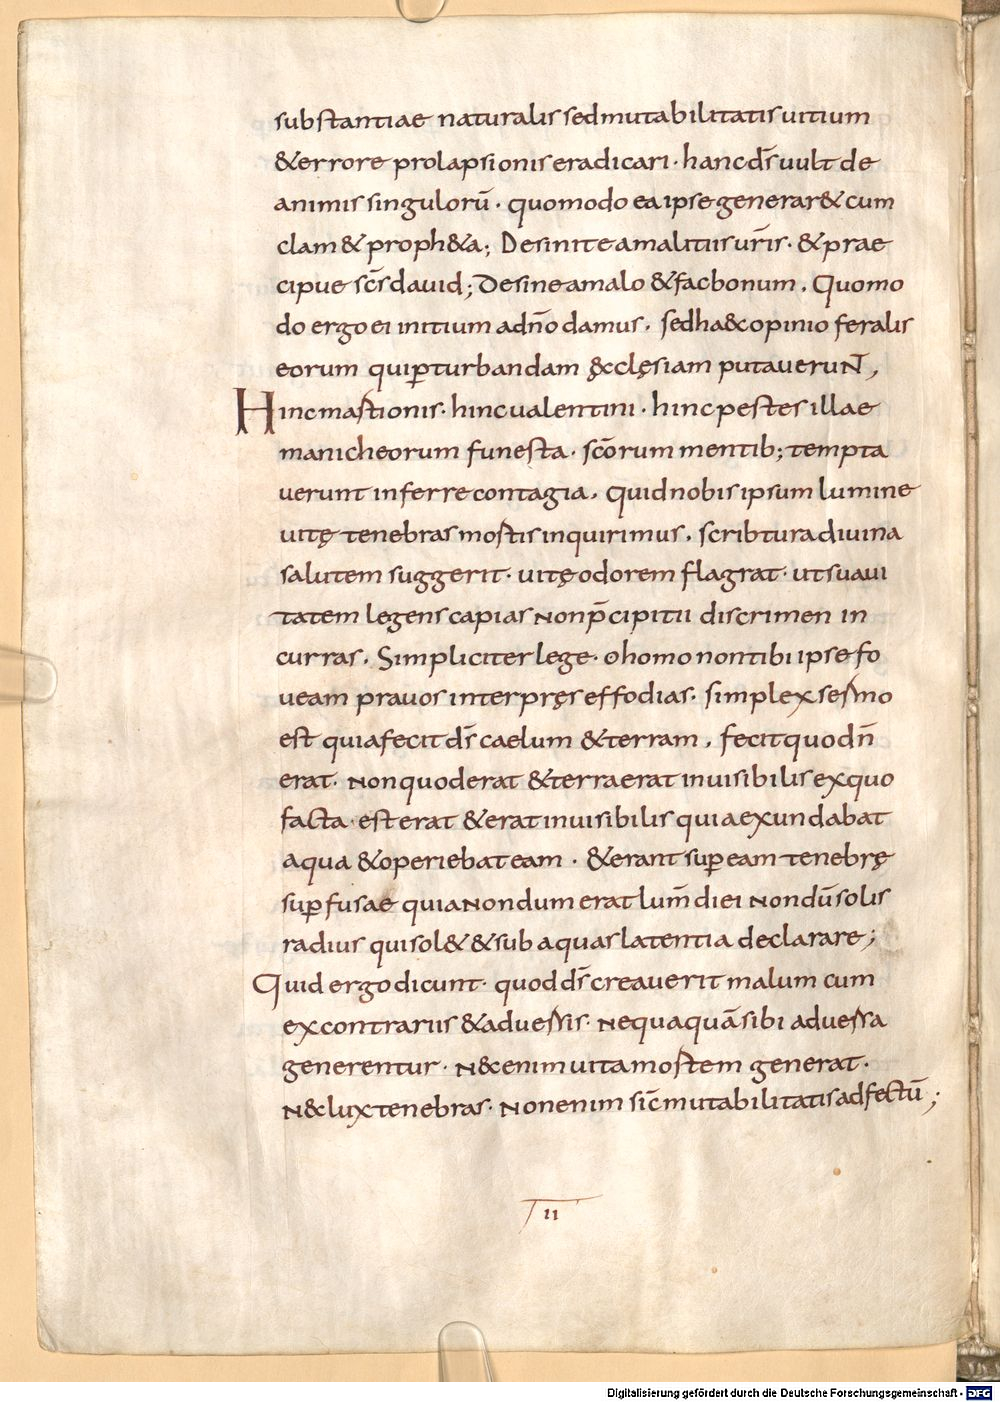 substantiae naturalis sed mutabilitatis uitium
& errore prolapsionis eradicari · hanc dš uult de
animis singulorū · quomodo ea ipse generar& cum
clam& proph&a; Desinite amalitiis uris̄ · & prae
cipue scs̄ dauid; Desine amalo & fac bonum . Quomo
do ergo ei initium adno᷃ damus . sed haec opinio feralis
eorum qui pturbandam ęcclęsiam putaueruNT ,
Hinc mastionis · hinc ualentini · hinc pestes illae
manicheorum funesta · sc̄orum mentib; tempta
uerunt inferre contagia . Quid nobis ipsum lumine
uitę tenebras mostis inquirimus . scribtura diuina
salutem suggerit · uitę odorem flagrat · ut suaui
tatem legens capias non p̄cipitii discrimen in
curras . Simpliciter lege · o homo non tibi ipse fo
ueam prauos interpręs effodias · simplex sesmo
est quia fecit dš caelum & terram . fecit quod n̄
erat · non quod erat & terra erat inuisibilis ex quo
facta · est erat & erat inuisibilis quia exundabat
aqua & operiebat eam · & erant sup eam tenebrę
sup fusae quia nondum erat lum̄ diei nondū solis
radius qui sol& & sub aquas latentia declarare ;
Quid ergo dicunt · quod dš creauerit malum cum
ex contrariis & aduessis · nequaquā sibi aduessa
generentur · n& enim uita mostem generat ·
n& lux tenebras · non enim sic̄ mutabilitatis adfectū ;
II
Digitalisierung gefördert durch die Deutsche Forschungsgemeinschaft - DFG